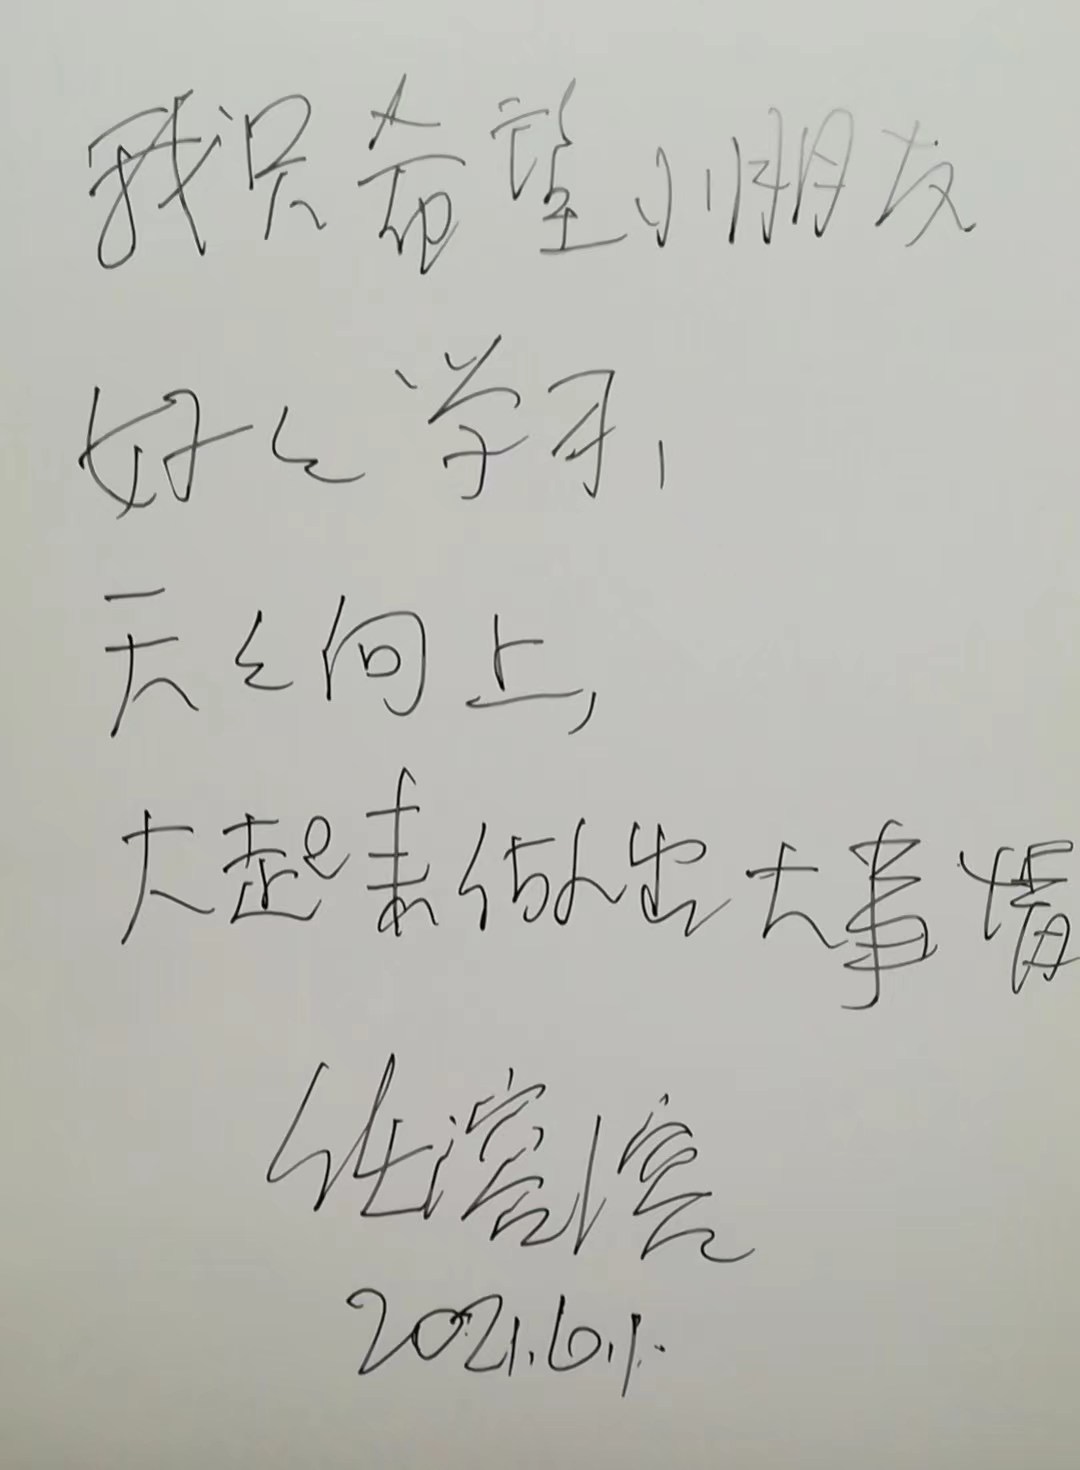 我只希望小朋友
好々学习,
天々向上,
大起来做出大事情
任溶溶
2021.6.1.